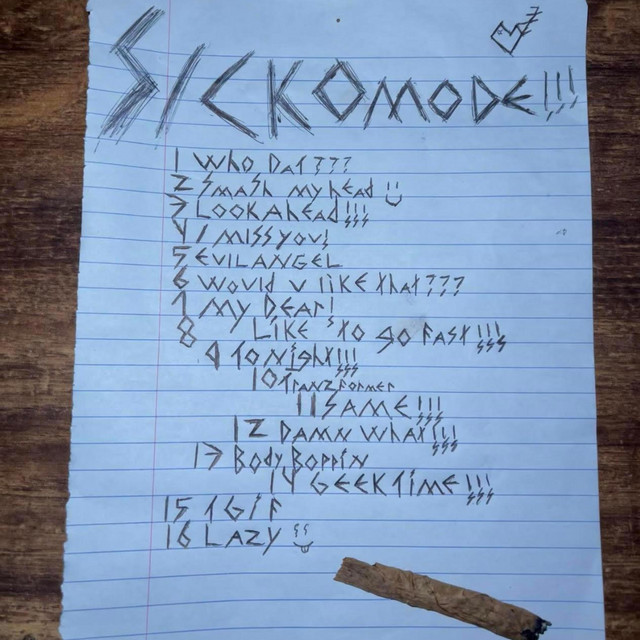 SICKOMODE!!!
1 WHO DAT???
2 SMASH MY HEAD
3 LOOKAHEAD!!!
4 I MISS YOU!
5 EVILANGEL
6 WOULD U LIKE THAT???
7 MY DEAR!
8 I LIKE TO GO FAST!!!
9 TONIGHT!!!
10 TRANZFORMER
11 SAME!!!
12 DAMN WHAT!!!
13 BODY BOPPIN
14 GEEKTIME!!!
15 TGIF
16 LAZY